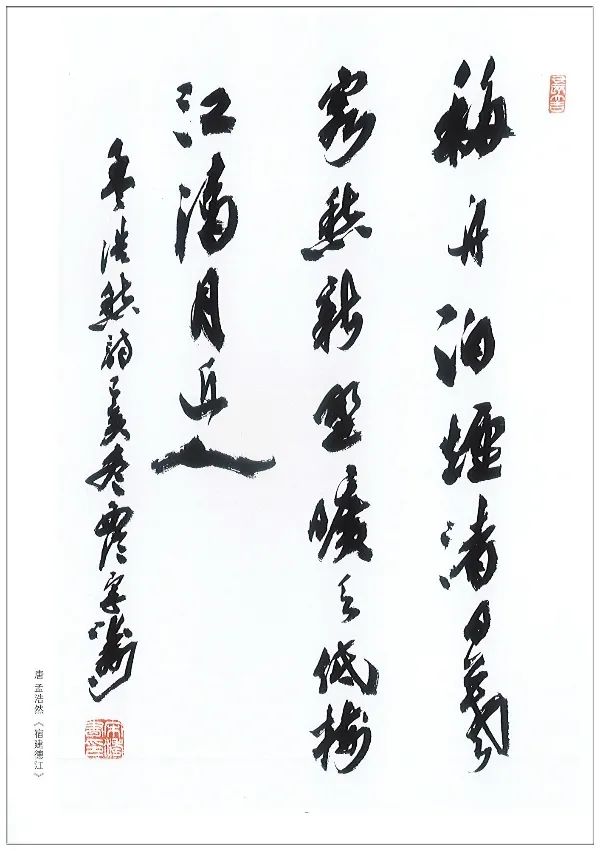 移舟泊煙渚日暮
客愁新野曠天低樹
江清月近人
孟浩然詩己亥冬
唐 孟浩然《宿建德江》